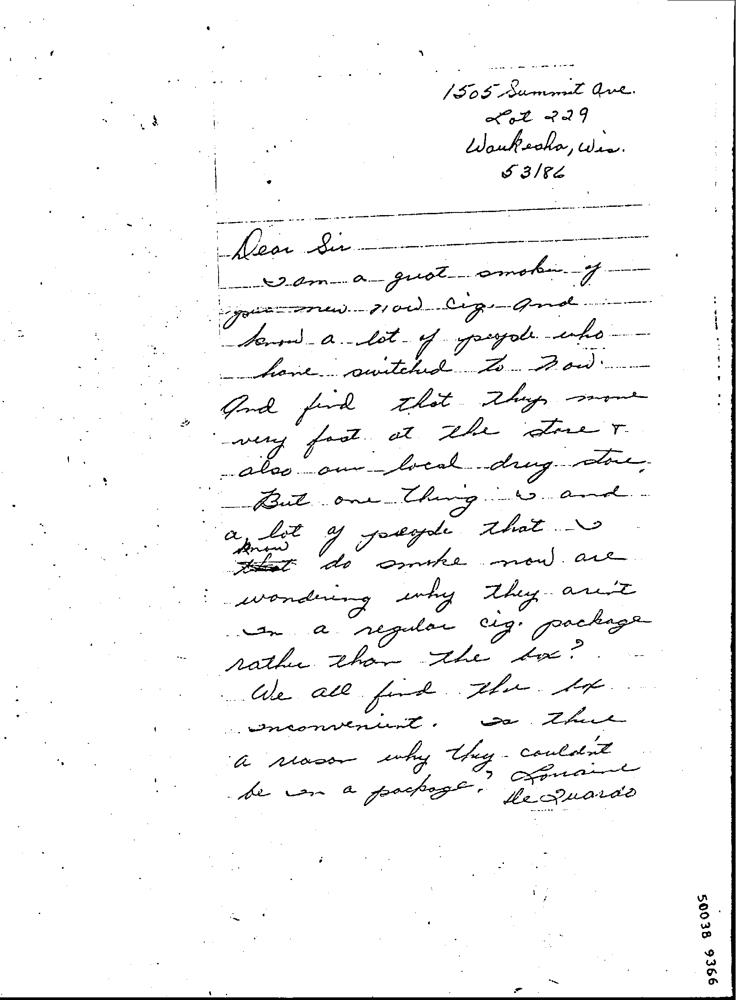 1505 Summit Ave.
Lot 229
Waukesha, Wis.
53186
Dear Sir
I am a great smoker of
your new Now Cig. And
know a lot of people who
have switched to Now.
And find that they move
very fast at the store +
also our local drug store.
But one thing I and
a lot of people that I
know
that do smoke now are
wondering why they aren't
in a regular cig. package
rather than the box?
We all find the box
inconvenient. Is there
a reason why they couldn't
be in a package? Lorraine
50038 9366